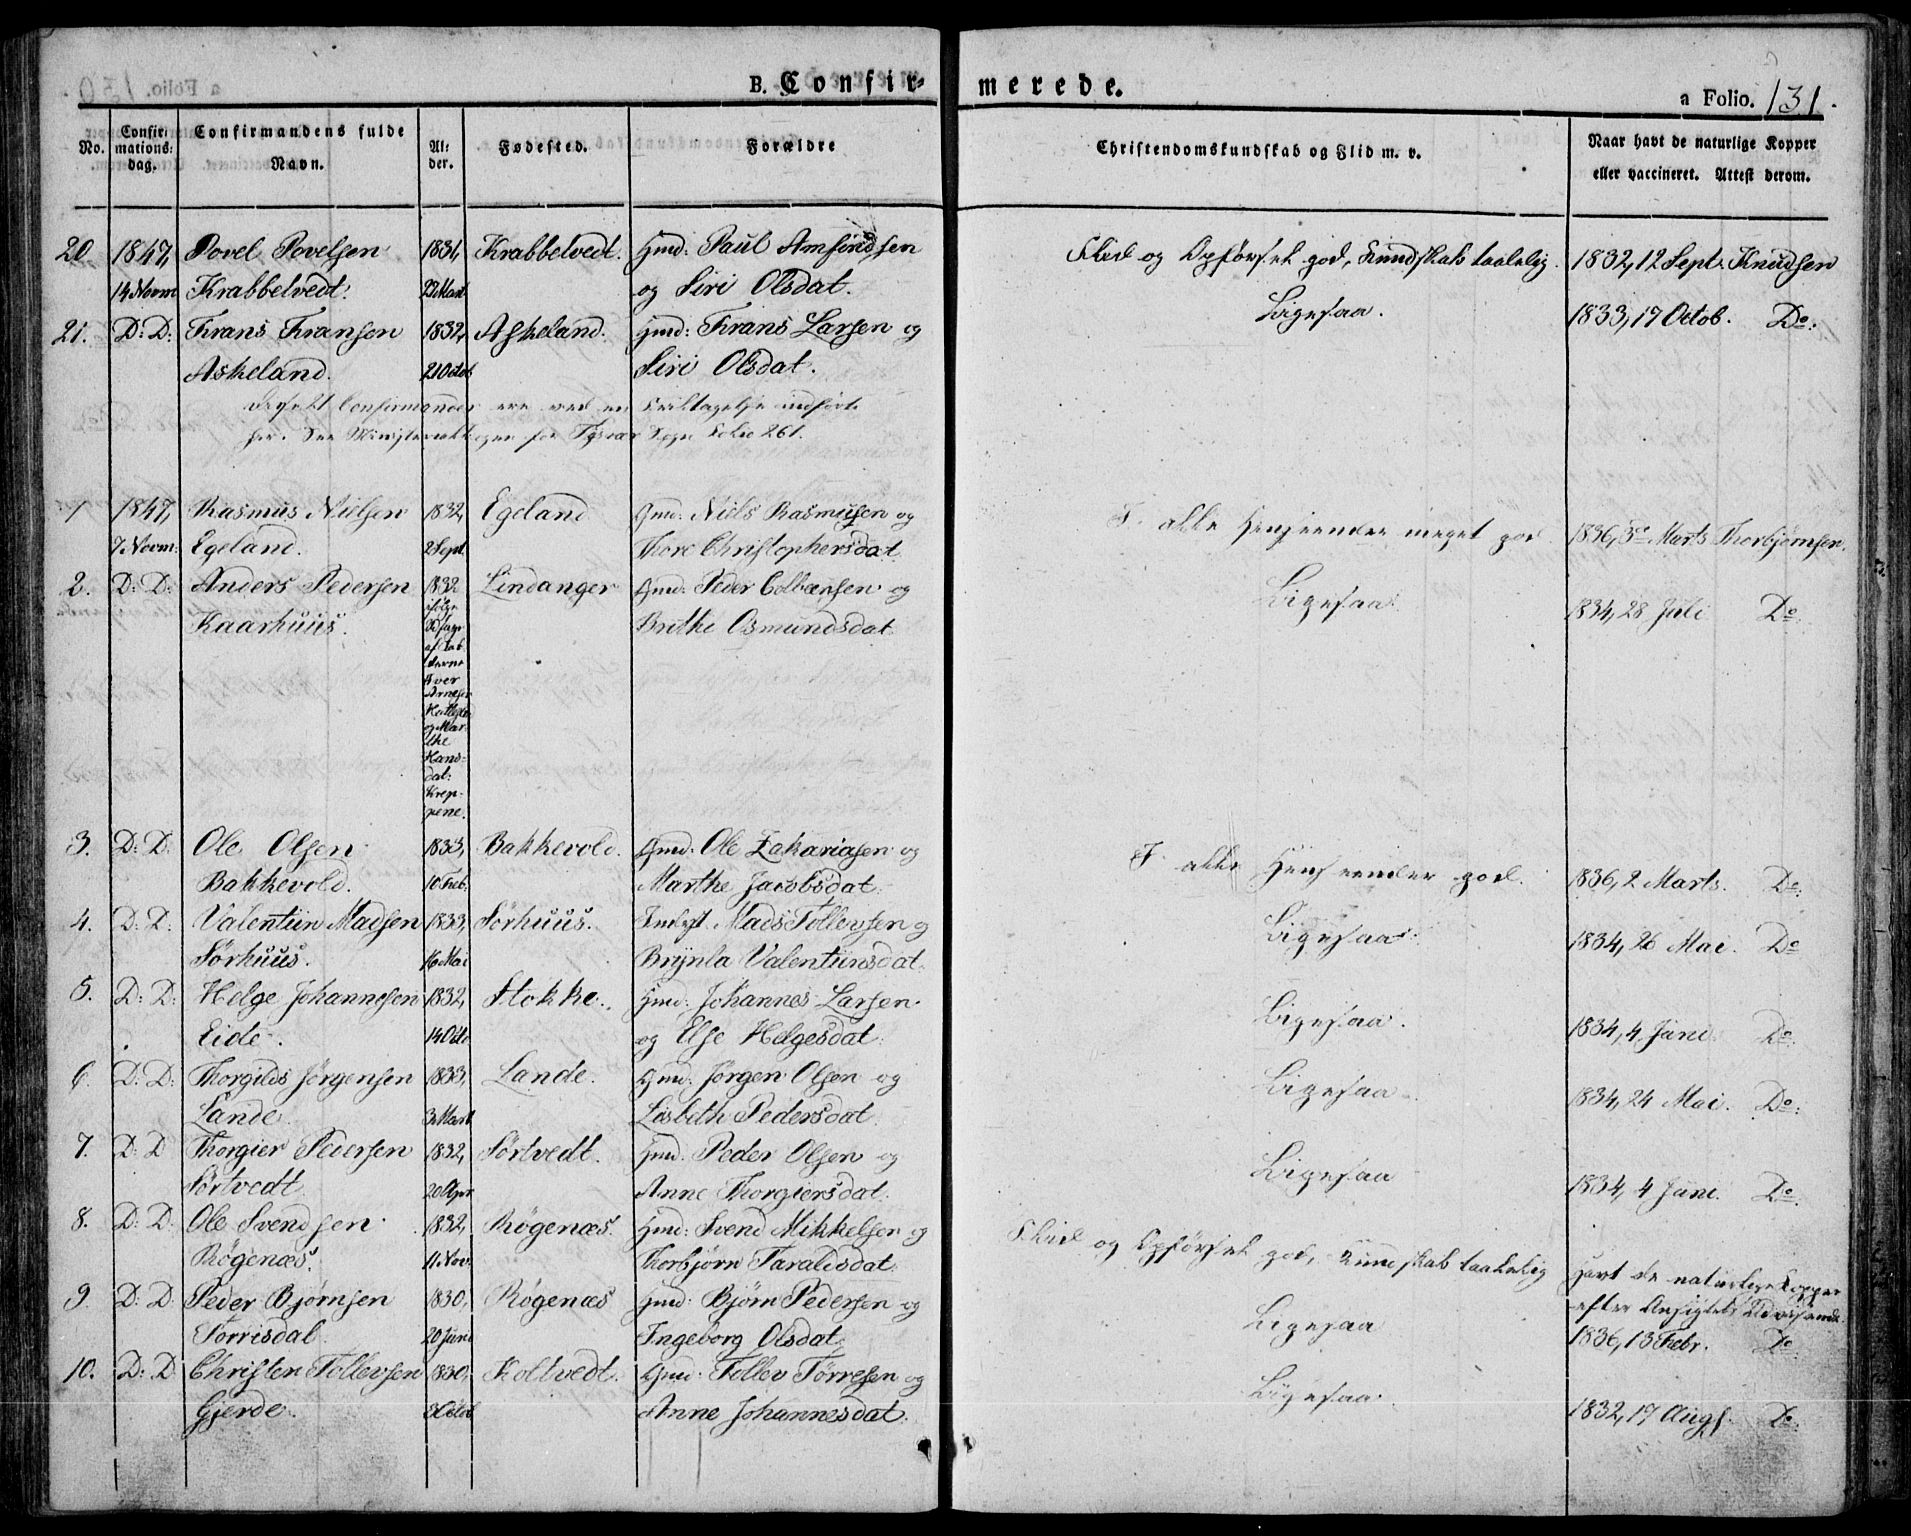 B. Confir-merede.
a Folio. 131.
No. Confirmationsdag. Confirmandens fulde Navn. Alder. Fødested. Forældre Christendomskundskab og Flid m. v. Naar havt de naturlige Kopper eller vaccineret. Attest derom.
20 1847, Povel Povelsen 1831, Krabbelvedt. Gmd: Paul Amfindsen Flid og Opførsel god, Kundskab taalelig. 1832, 12 Sept. Knudsen
14 Novm Krabbelvedt. 22 Mart og Siri Olsdat.
21. D: D: Frans Fransen 1832, Askeland. Gmd: Frans Larsen og Ligesaa. 1833, 17 Octob. Do:
Askeland. 21 Octob Siri Olsdat.
Disse to Confirmander ere ved en Feiltagelse indførte
her. See Ministerialbogen for Tysvær Sogn Folio 261.
1 1847, Rasmus Nielsen 1832, Egeland Gmd: Niels Rasmusen og I alle Henseender meget god 1836, 5te Marts Thorbjørnsen.
7 Novm: Egeland. 2 Sept. Thore Christophersdat
2. D: D: Anders Pedersen 1832 Lindanger Gmd: Peder Colbænsen og Ligesaa. 1834, 28 Juli Do
Kaarhuus. ifølge Brithe Osmundsdat
Udsagn
af Fad-
derne
Iver
Arnesen
og Mar-
the
Hans-
dat:
Krep-
pene.
3. D: D: Ole Olsen 1833, Bakkevold. Gmd: Ole Zakariasen og I alle Henseender god. 1836, 2 Marts. Do
Bakkevold. 10 Feb. Marthe Jacobsdat.
4. D: D: Valentiin Madsen 1833, Sørhuus. Inderst Mads Tollevsen og Ligesaa. 1834, 26 Mai. Do
Sørhuus. 16 Mai Brynla Valentiinsdat.
5. D: D: Helge Johannesen 1832, Stokke. Gmd: Johannes Larsen Ligesaa. 1834, 4 Juni. Do:
Eide. 14 Octo og Else Helgesdat.
6 D: D: Thorgils Jørgensen 1833, Lande. Gmd: Jørgen Olsen og Ligesaa. 1834, 24 Mai. Do:
Lande. 3 Mart Lisbeth Pedersdat.
7. D: D Thorgier Pedersen 1832, Sørtvedt. Gmd: Peder Olsen og Ligesaa 1834, 4 Juni. Do
Sørtvedt 20 Apr Anne Thorgiersdat.
8. D: D: Ole Svendsen 1832, Røgenæs. Gmd: Svend Mikkelsen og Flid og Opførsel god, Kundskab taalelig Havt de naturlige Kopper
Røgenæs. 11 Nov. Thorbjørn Taraldsdat. efter Ansigtets Udvisende.
9. D: D Peder Bjørnsen 1830, Røgenæs Gmd: Bjørn Pedersen og Ligesaa 1836, 13 Febr. Do
Torrisdal. 20 Juni Ingeborg Olsdat.
10. D: D Christen Tollevsen 1830, Koltvedt. Gmd: Tollev Tørresen og Ligesaa. 1832, 17 Augs. Do:
Gjerde. 8 Octob Anne Johannesdat.